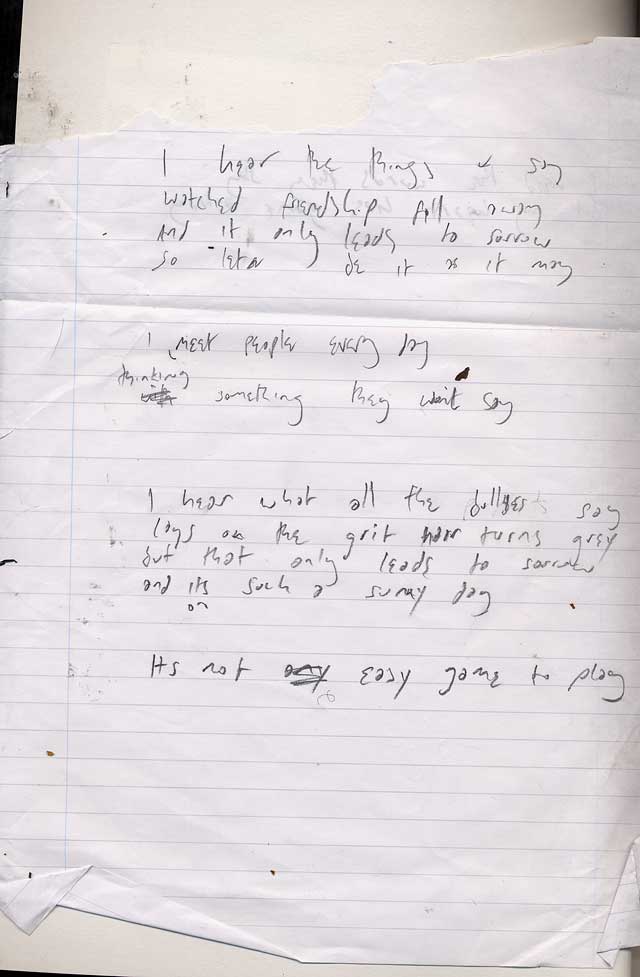 I hear the things u say
watched friendship fall away
And it only leads to sorrow
so let be it as it may
I meet people every day
thinking
something they wont say
I hear what all the say
lays on the grit hair turns grey
but that only leads to sorrow
and its such a sunny day
on
Its not easy game to play